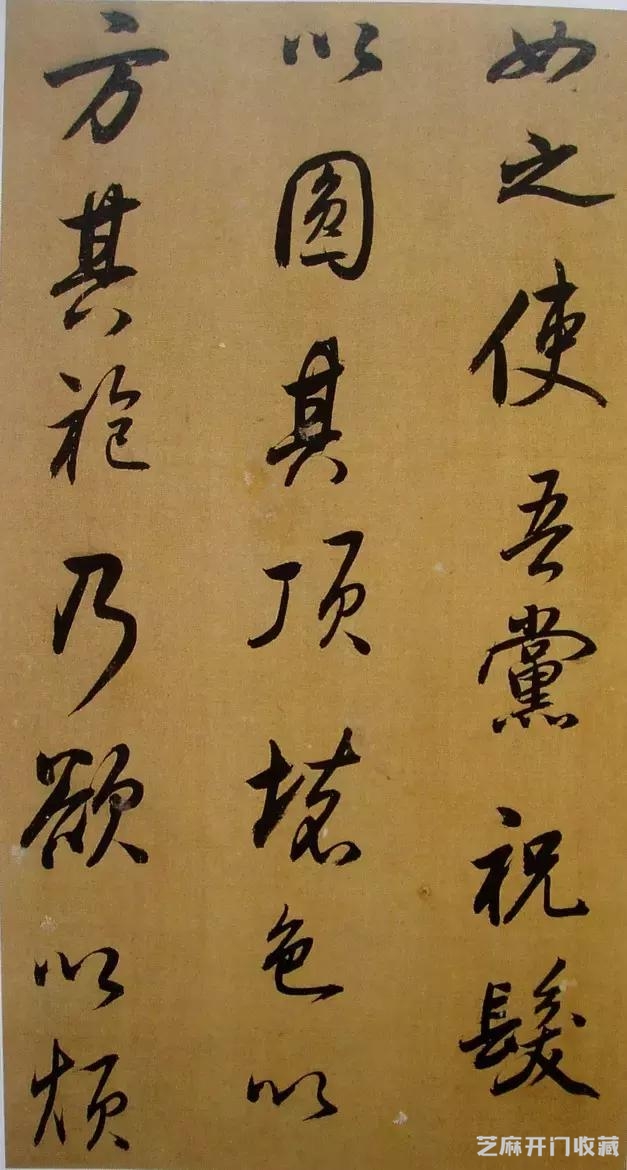 如之使吾黨祝髮
以圓其頂壞色以
方其袍乃欲以煩
芝麻开门收藏